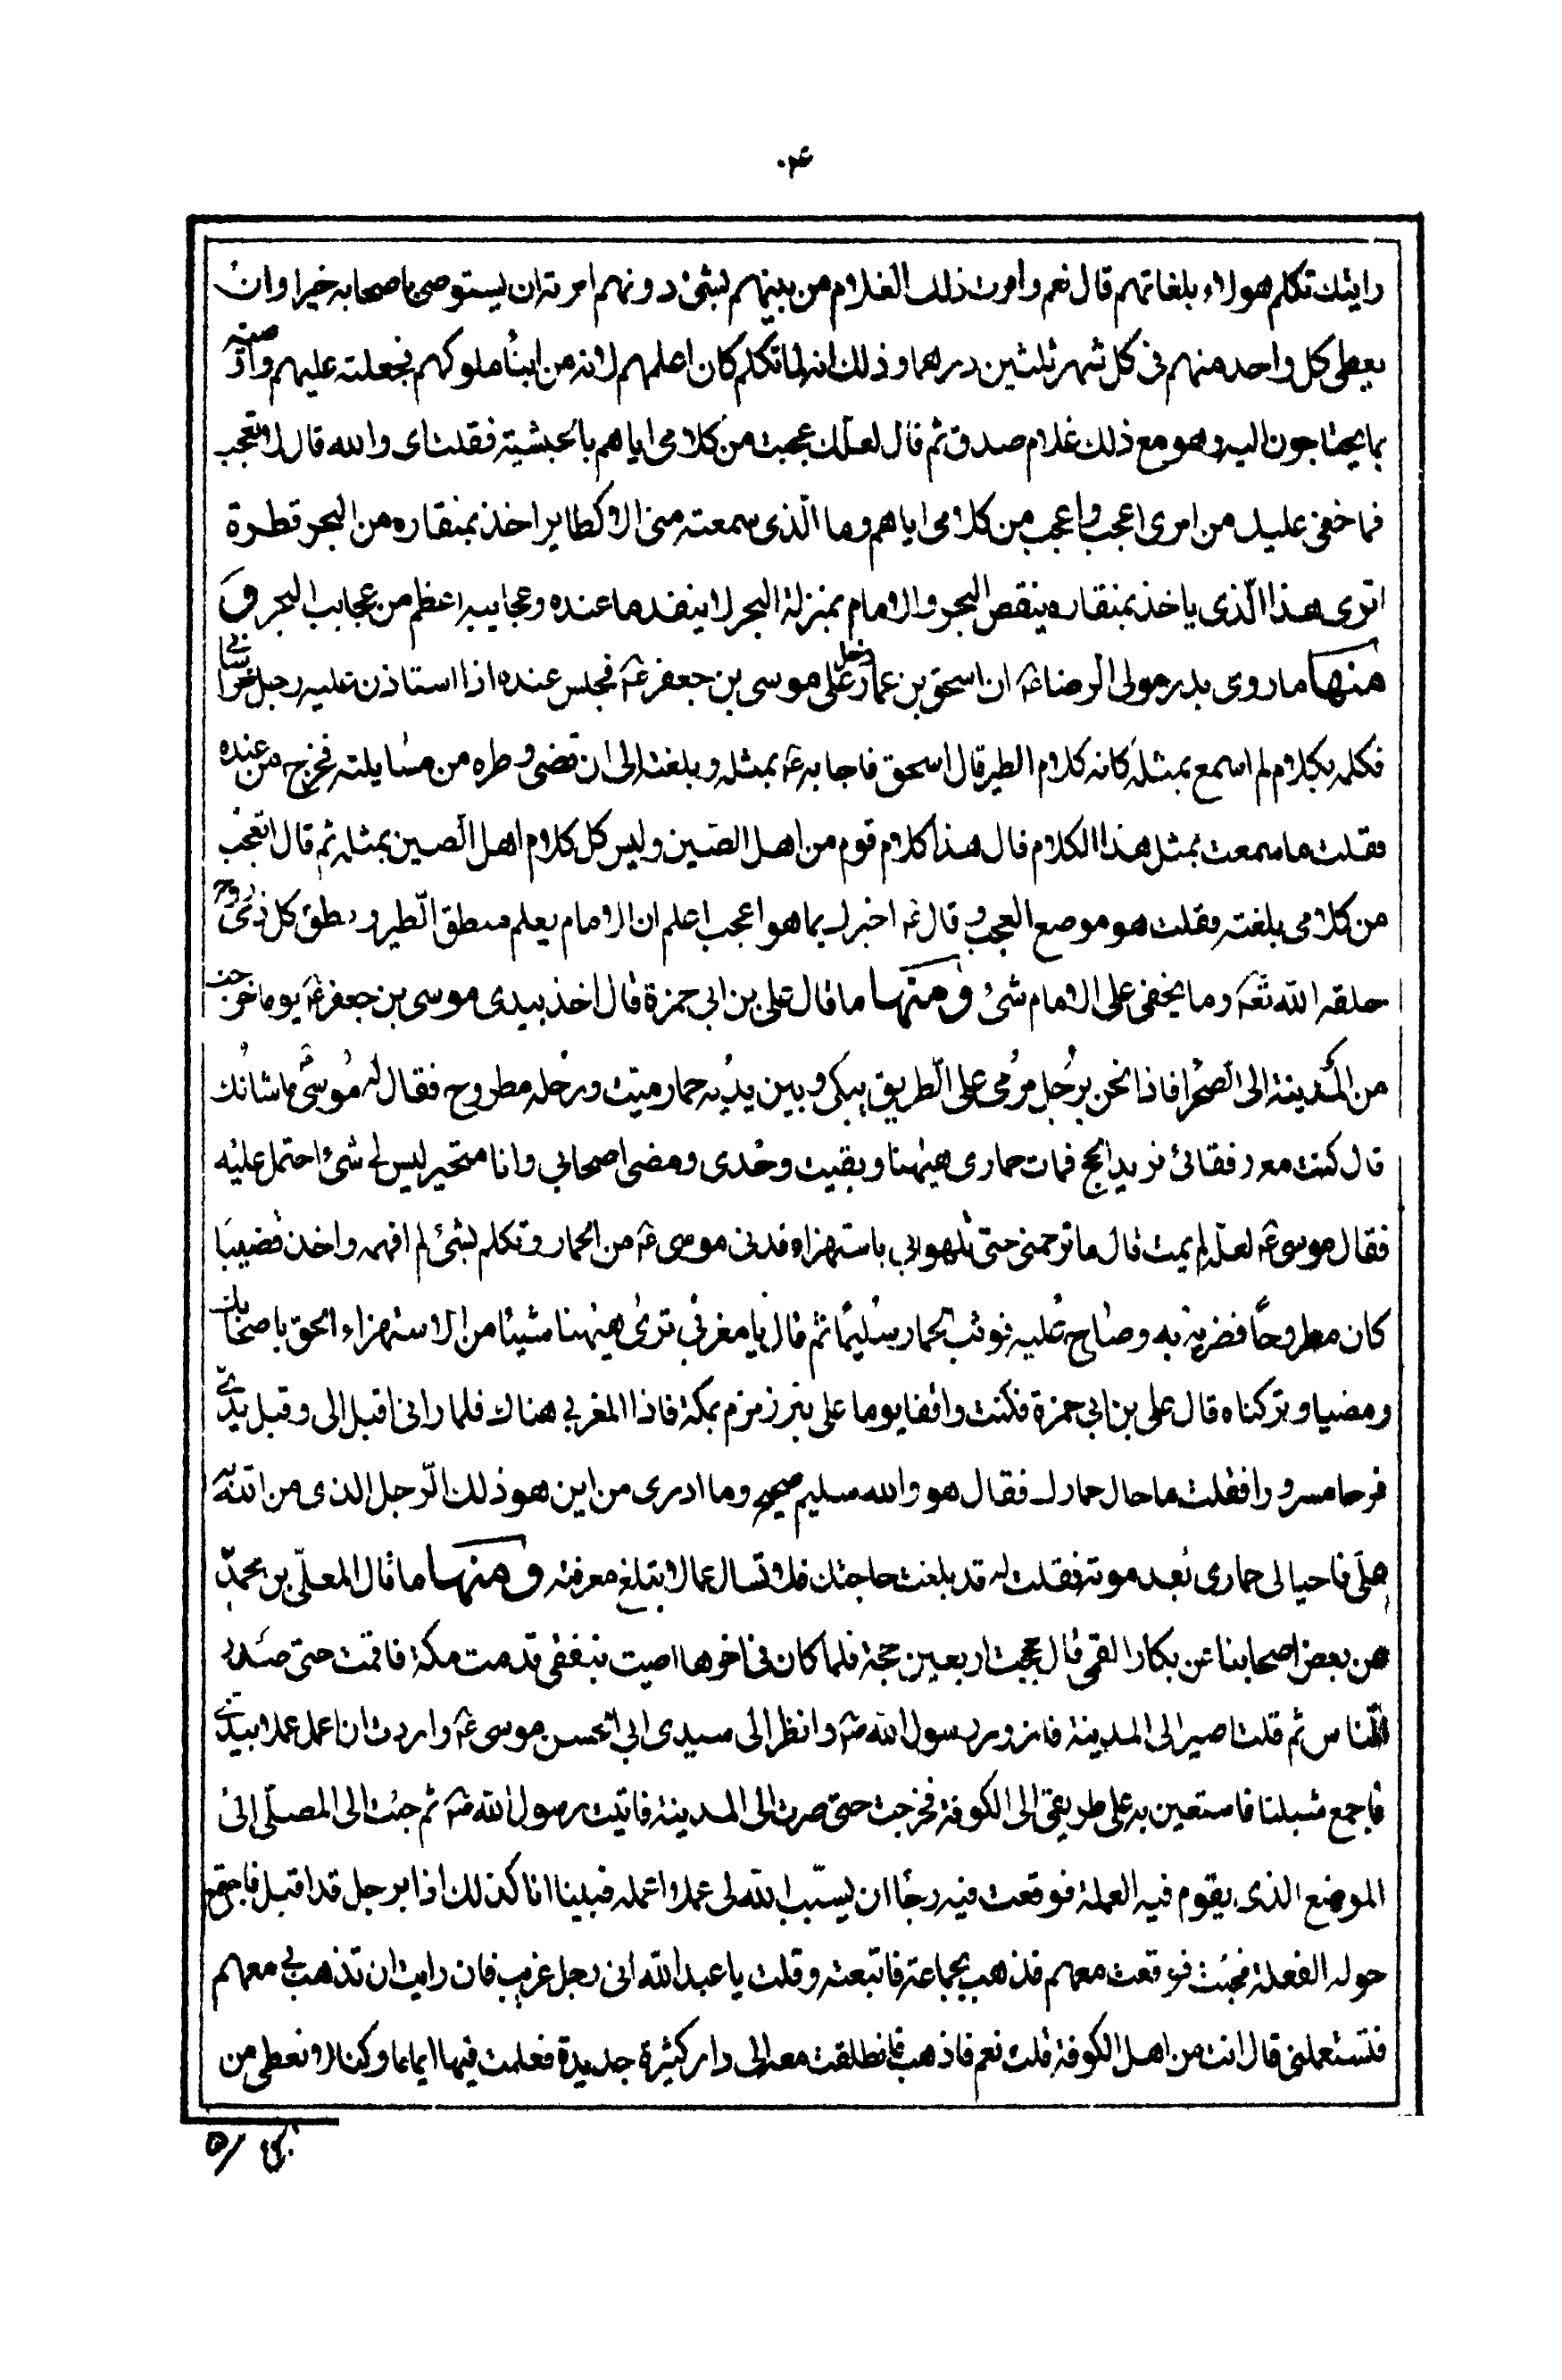 رايتك تكلم هولاء بلغاتهم قال نعم وامرت ذلك الغلام من بينهم بشئ دونهم امرته ان يستوصى باصحابه خيرا وان
يعطى كل واحد منهم فى كل شهر ثلثين درهما وذلك انه لما تكلم كان اعلمهم لانه من ابناء ملوكهم فجعلته عليهم واوصيته
بما يحتاجون اليه وهو مع ذلك غلام صدق ثم قال لعلك عجبت من كلامى اياهم بالحبشية فقلت اى والله قال لا تعجب
فما خفى عليك من امرى اعجب واعجب من كلامى اياهم وما الّذى سمعته منى الا كطاير اخذ بمنقاره من البحر قطرة
اترى هذا الّذى ياخذ بمنقاره ينقص البحر والامام بمنزلة البحر لا ينفد ما عنده وعجايبه اعظم من عجايب البحر و
منها ما روى بدر مولى الرضا عه ان اسحق بن عمار دخل على موسى بن جعفر عه فجلس عنده اذا استاذن عليه رجل خراسانى
فكلمه بكلام لم اسمع بمثله كانه كلام الطير قال اسحق فاجابه عه بمثله وبلغته الى ان قضى وطره من مسايلته فخرج من عنده
فقلت ما سمعت بمثل هذا الكلام قال هذا كلام قوم من اهل الصّين وليس كل كلام اهل الصين بمثله ثم قال اتعجب
من كلامى بلغته فقلت هو موضع العجب قال عه اخبرك بما هو اعجب اعلم ان الامام يعلم منطق الطير ونطق كل ذى روح
خلقه الله تعه وما يخفى على الامام شئ ومنها ما قال على بن ابى حمزة قال اخذ بيدى موسى بن جعفر عه يوما فخرجنا
من المدينة الى الصحرا فاذا نحن برجل مرمى على الطّريق يبكى وبين يديه حمار ميت ورحله مطروح فقال له موسى ما شانك
قال كنت مع رفقائى نريد الحج فمات حمارى هيهنا وبقيت وحدى ومضى اصحابى وانا متحير ليس لى شئ احتمل عليه
فقال موسى عه لعله لم يمت قال ما ترحمنى حتى تلهو بى باستهزاء فدنى موسى عه من الحمار وتكلم بشئ لم افهمه واخذ قضيبا
كان مطروحا فضربه به وصاح عليه فوثب الحمار سليما ثم قال يا مغربى ترى هيهنا شيئا من الاستهزاء الحق باصحابك
ومضينا وتركناه قال على بن ابى حمزة فكنت واقفا يوما على بئر زمزم بمكة فاذا المغربى هناك فلما رانى اقبل الى وقبل يدى
فرحا مسرورا فقلت ما حال حمارك فقال هو والله سليم صحيح وما ادرى من اين هو ذلك الرّجل الذى من الله به
علىّ فاحيا لى حمارى بعد موته فقلت له قد بلغت حاجتك فلا تسال عما لا تبلغ معرفته ومنها ما قال المعلّى بن محمد
عن بعض اصحابنا عن بكار القمى قال حججت اربعين حجة فلما كان فى اخرها اصيت بنفقى قدمت مكة فاقمت حتى صدر
النّاس ثم قلت اصير الى المدينة فازور رسول الله صه وانظر الى سيدى ابى الحسن موسى عه واردت ان اعمل عملا بيدى
فاجمع شيئا فاستعين به على طريقى الى الكوفة فخرجت حتى صرت الى المدينة فاتيت رسول الله صه ثم جئت الى المصلّى الى
الموضع الذى يقوم فيه العملة فوقعت فيه رجاا ان يسبّب الله لى عملا اعمله فبينا انا كذلك اذا برجل قد اقبل فاجتمع
حوله الفعلة فجئت فوقعت معهم فذهب بجماعة فاتبعته وقلت يا عبد الله انى رجل غريب فان رايت ان تذهب بى معهم
فتستعملنى قال انت من اهل الكوفة قلت نعم فاذهب فانطلقت معه الى دار كثيرة جديدة فعلمت فيها اياما وكنا لا نعطى من